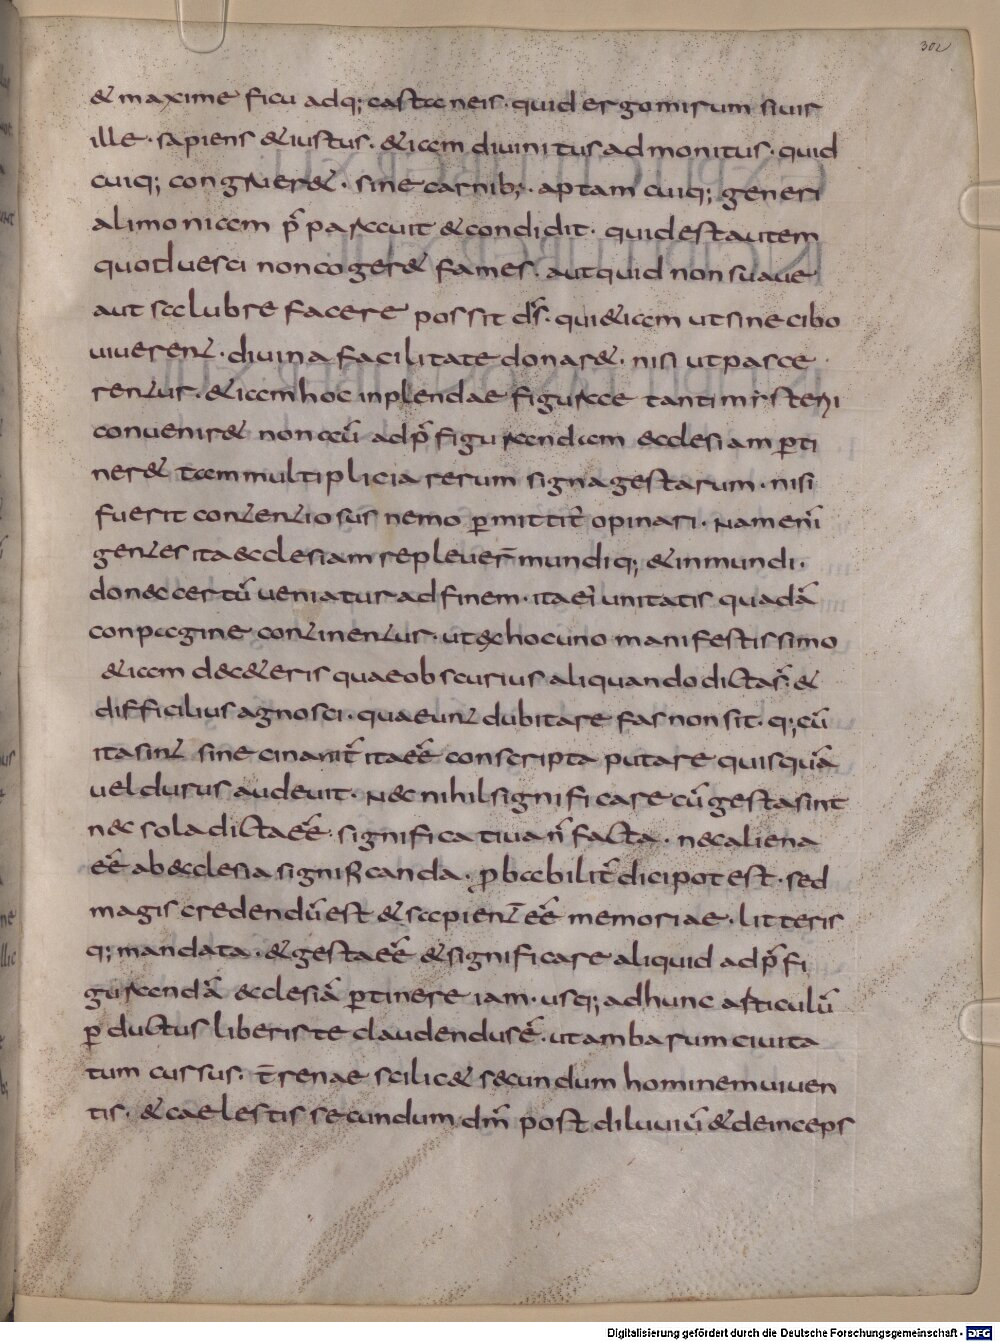 302
& maxime ficu adq; castaneis· quid ergo mirum si uir
ille· sapiens & iustus· &iam diuinitus admonitus· quid
cuiq; congruer&· sine carnib;· aptam cuiq; generi
alimoniam p̄parauit & condidit· quid est autem
quod uesci non coger& fames· aut quid non suaue
aut salubre facere possit d̄s· qui &iam ut sine cibo
uiuerent· diuina facilitate donar&· nisi ut pasce
rentur· &iam hoc inplendae figurae tanti misterii
conuenir& non aū ad p̄figurandam ecclesiam ꝑti
ner& tam multiplicia rerum signa gestarum· nisi
fuerit contentiosus nemo ꝑmittit̄ opinari· Nam enī
gentes ita ecclesiam repleuer̄ mundiq; & inmundi·
donec certū ueniatur ad finem· ita ei unitatis quadā
conpagine continentur· ut ex hoc uno manifestissimo
&iam de c&eris quae obscurius aliquando dicta s̄ &
difficilius agnosci· quaeunt dubitare fas non sit· q; cū
ita sint si nec inanit̄ ita eē conscripta putare quisquā
uel durus audeuit· Nec nihil significare cū gesta sint
nec sola dicta eē· significatiua n̄ facta· nec aliena
eē ab ecclesia significanda· ꝓbabilit̄ dici potest· sed
magis credendū est & sapient̄ eē memoriae· litteris
q; mandata· & gesta eē & significare aliquid ad p̄fi
gurandā ecclesiā ꝑtinere iam· usq; ad hunc articulū
ꝑductus liber iste claudendus ē· ut ambarum ciuita
tum cursus· t̄renae scilic& secundum hominem uiuen
tis· & caelestis secundum dm̄ post diluuiū & deinceps
Digitalisierung gefördert durch die Deutsche Forschungsgemeinschaft - DFG